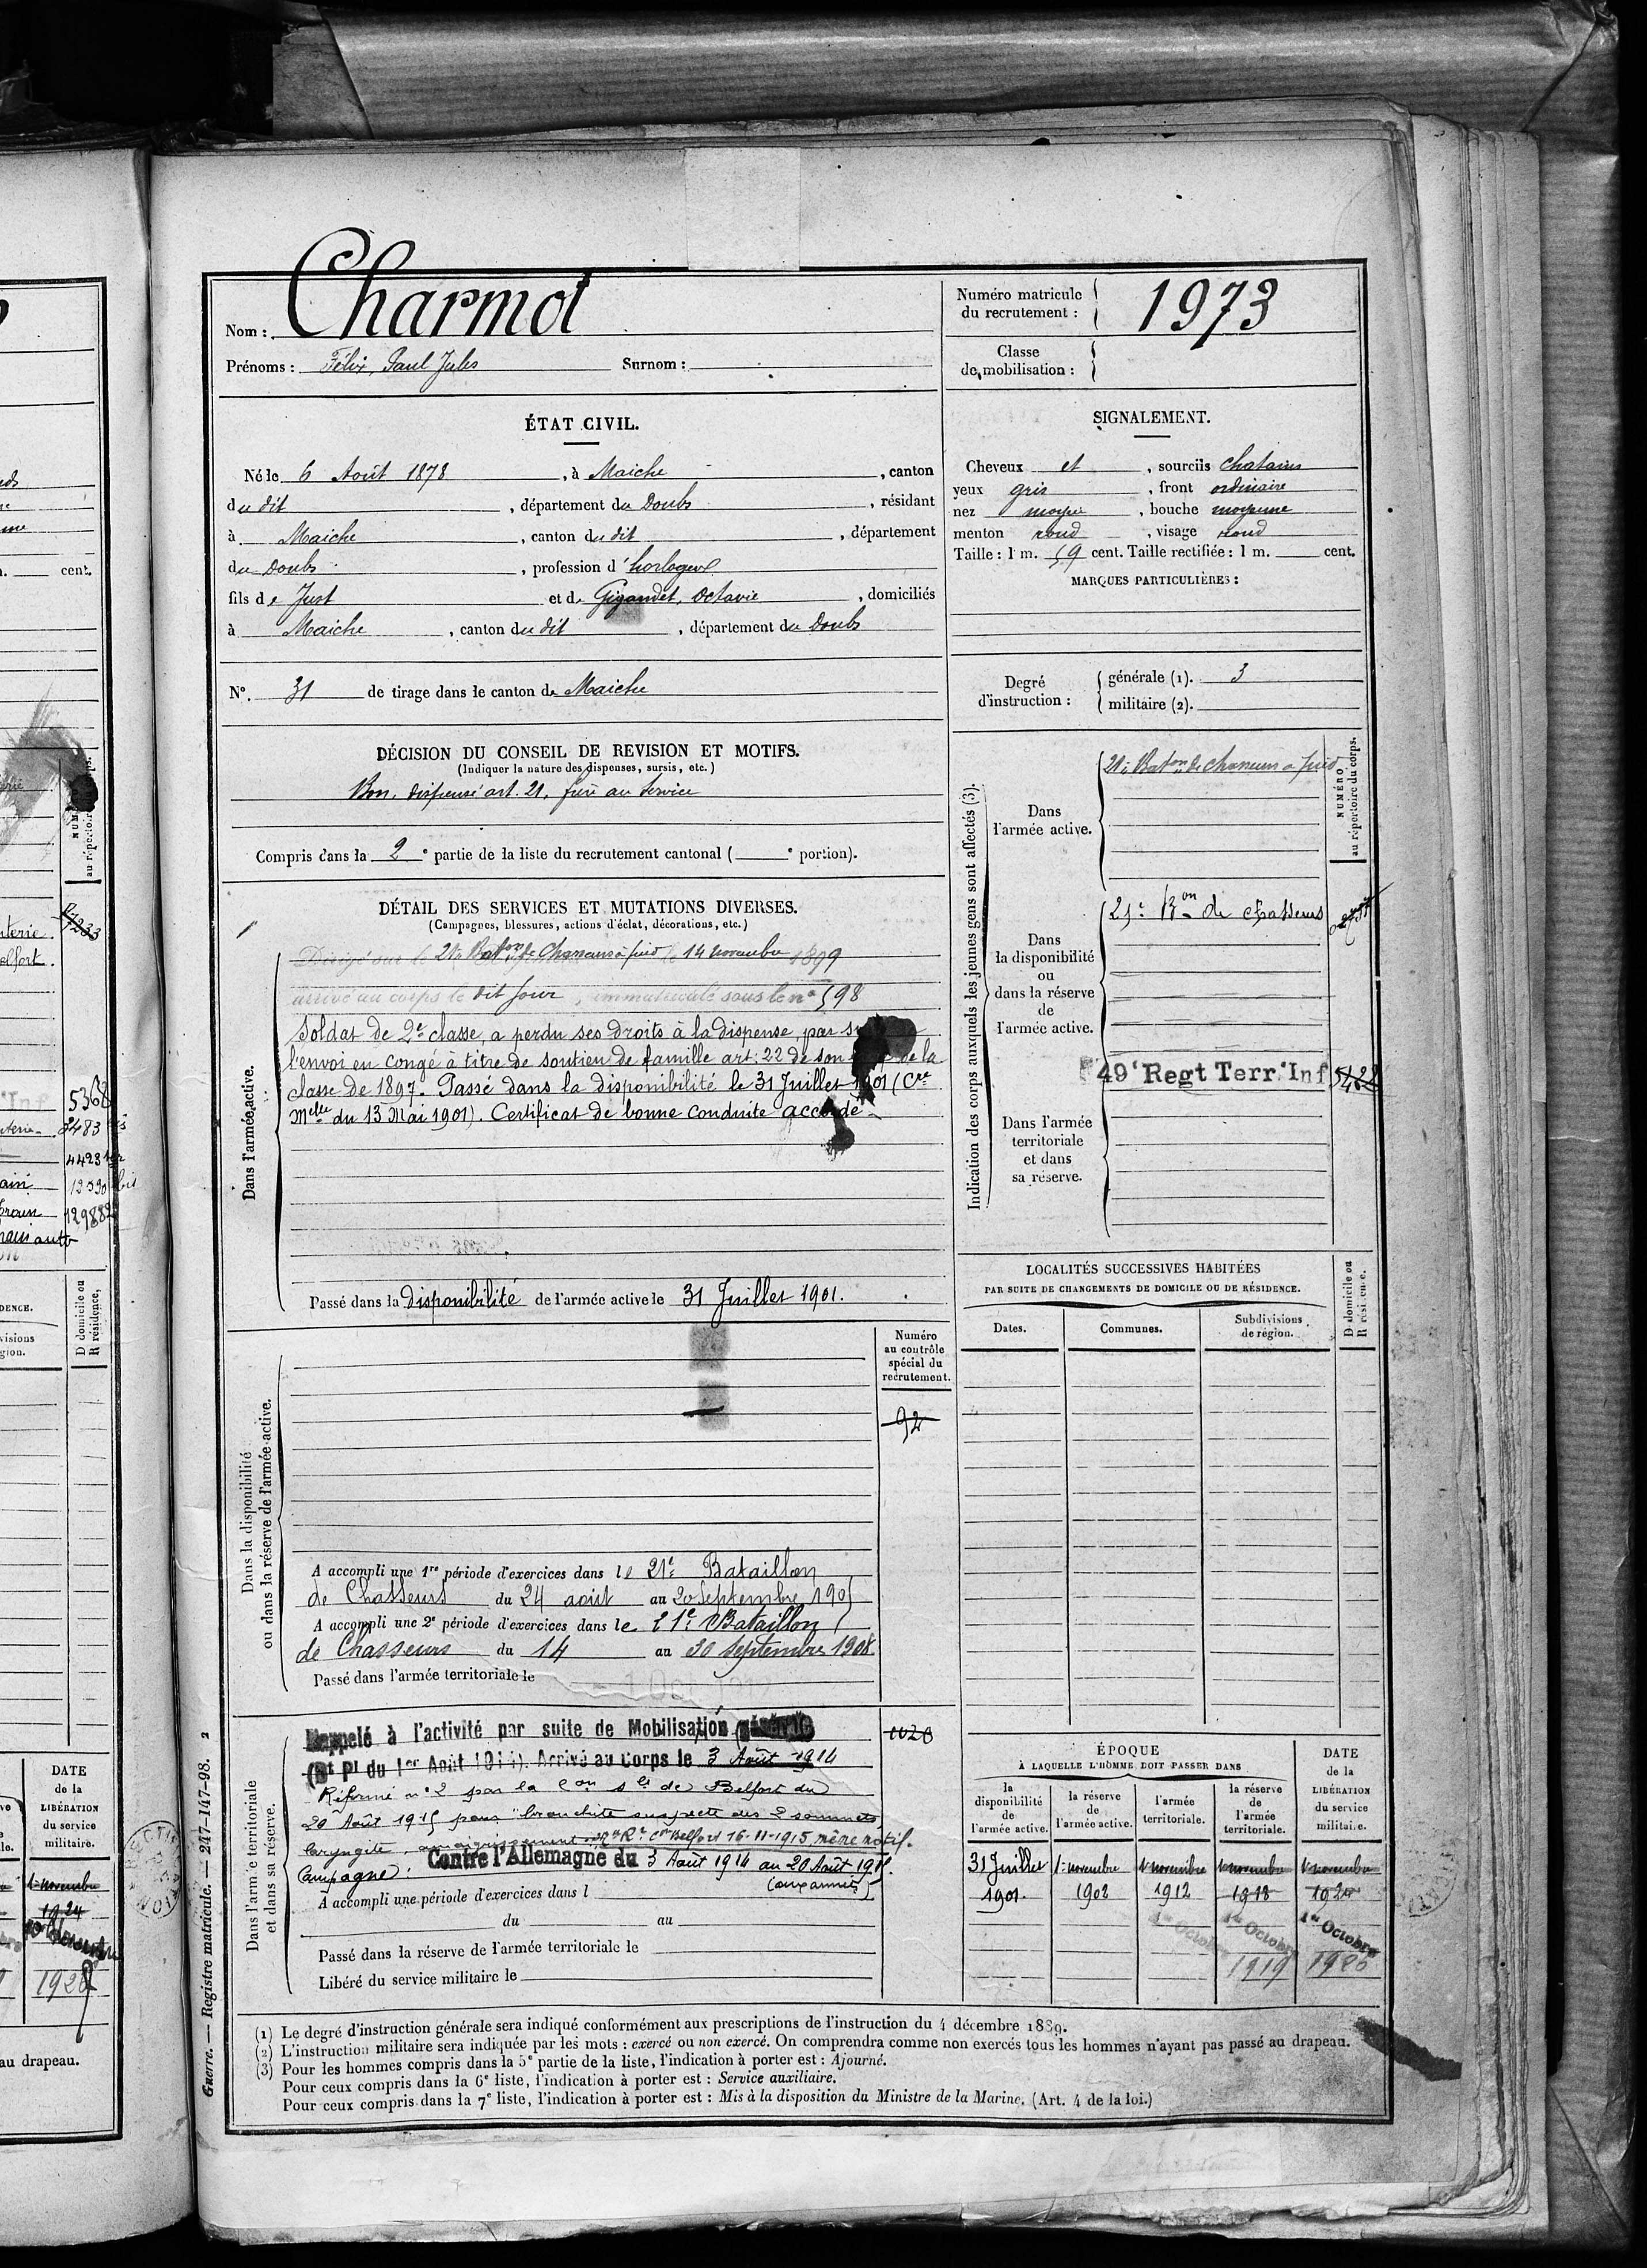 Charmot
Nom :
Prénoms : Félix, Paul Jules Surnom :
Numéro matricule du recrutement : 1973
Classe de mobilisation :
ÉTAT CIVIL.
Né le 6 Août 1878, à Maiche, canton
du dit, département du Doubs, résidant
à Maiche, canton du dit, département
du Doubs, profession d'horloger
fils de Just et de Gigandet, Octavie, domiciliés
à Maiche, canton du dit, département du Doubs
N°. 31 de tirage dans le canton de Maiche
SIGNALEMENT.
Cheveux et, sourcils chatains
yeux gris, front ordinaire
nez moyen, bouche moyenne
menton rond, visage rond
Taille : 1 m. 59 cent. Taille rectifiée : 1 m. cent.
MARQUES PARTICULIÈRES :
Degré d'instruction :
générale (1). 3
militaire (2).
DÉCISION DU CONSEIL DE REVISION ET MOTIFS.
(Indiquer la nature des dispenses, sursis, etc.)
Bon, dispensé art. 21, frère au service
Compris dans la 2e partie de la liste du recrutement cantonal ( e portion).
DÉTAIL DES SERVICES ET MUTATIONS DIVERSES.
(Campagnes, blessures, actions d'éclat, décorations, etc.)
Dans l'armée active.
Dirigé sur le 21e Bat.on de Chasseurs à pied le 14 novembre 1899
arrivé au corps le dit jour, immatriculé sous le n° 598
Soldat de 2e classe, a perdu ses droits à la dispense, par
l'envoi en congé à titre de soutien de famille art. 22 de son de la
classe de 1897. Passé dans la disponibilité le 31 Juillet 1901 (Cre
Melle du 13 Mai 1901). Certificat de bonne conduite accordé
Passé dans la disponibilité de l'armée active le 31 Juillet 1901.
Indication des corps auxquels les jeunes gens sont affectés (3).
NUMÉRO au répertoire du corps.
Dans l'armée active.
21e Baton de chasseurs à pied
Dans la disponibilité ou dans la réserve de l'armée active.
21e Bon de chasseurs
49e Regt Terr. Inf 5422
Dans l'armée territoriale et dans sa réserve.
Dans la disponibilité ou dans la réserve de l'armée active.
Numéro au contrôle spécial du recrutement.
92
A accompli une 1re période d'exercices dans le 21e Bataillon
de Chasseurs du 24 août au 20 Septembre 1905
A accompli une 2e période d'exercices dans le 21e Bataillon
de Chasseurs du 14 au 30 Septembre 1908
Passé dans l'armée territoriale le
LOCALITÉS SUCCESSIVES HABITÉES
PAR SUITE DE CHANGEMENTS DE DOMICILE OU DE RÉSIDENCE.
Dates.
Communes.
Subdivisions de région.
D domicile ou R résidence.
Dans l'armée territoriale et dans sa réserve.
Rappelé à l'activité par suite de Mobilisation générale
(Dt Pl du 1er Août 1914). Arrivé au Corps le 3 Août 1914
Réformé n° 2 par la Con sle de Belfort du
20 Août 1915 pour "bronchite suspecte des 2 sommets
laryngite, amaigrissement Belfort 16-11-1915, même motif.
Campagne : Contre l'Allemagne du 3 Août 1914 au 20 Août 1915.
(aux armées)
A accompli une période d'exercices dans l
du au
Passé dans la réserve de l'armée territoriale le
Libéré du service militaire le
ÉPOQUE
À LAQUELLE L'HOMME DOIT PASSER DANS
la disponibilité de l'armée active.
la réserve de l'armée active.
l'armée territoriale.
la réserve de l'armée territoriale.
DATE de la LIBÉRATION du service militaire.
31 Juillet 1er novembre 1er novembre 1er novembre 1er novembre
1901. 1902 1912 1918 1924
1er Octobre 1er Octobre 1er Octobre
1919
(1) Le degré d'instruction générale sera indiqué conformément aux prescriptions de l'instruction du 4 décembre 1889.
(2) L'instruction militaire sera indiquée par les mots : exercé ou non exercé. On comprendra comme non exercés tous les hommes n'ayant pas passé au drapeau.
(3) Pour les hommes compris dans la 5e partie de la liste, l'indication à porter est : Ajourné.
Pour ceux compris dans la 6e liste, l'indication à porter est : Service auxiliaire.
Pour ceux compris dans la 7e liste, l'indication à porter est : Mis à la disposition du Ministre de la Marine. (Art. 4 de la loi.)
Guerre. — Registre matricule. — 247-147-98. 2
cent.
5368
12988
DATE
de la
LIBÉRATION
du service
militaire.
1er novembre
1924
1928
au drapeau.